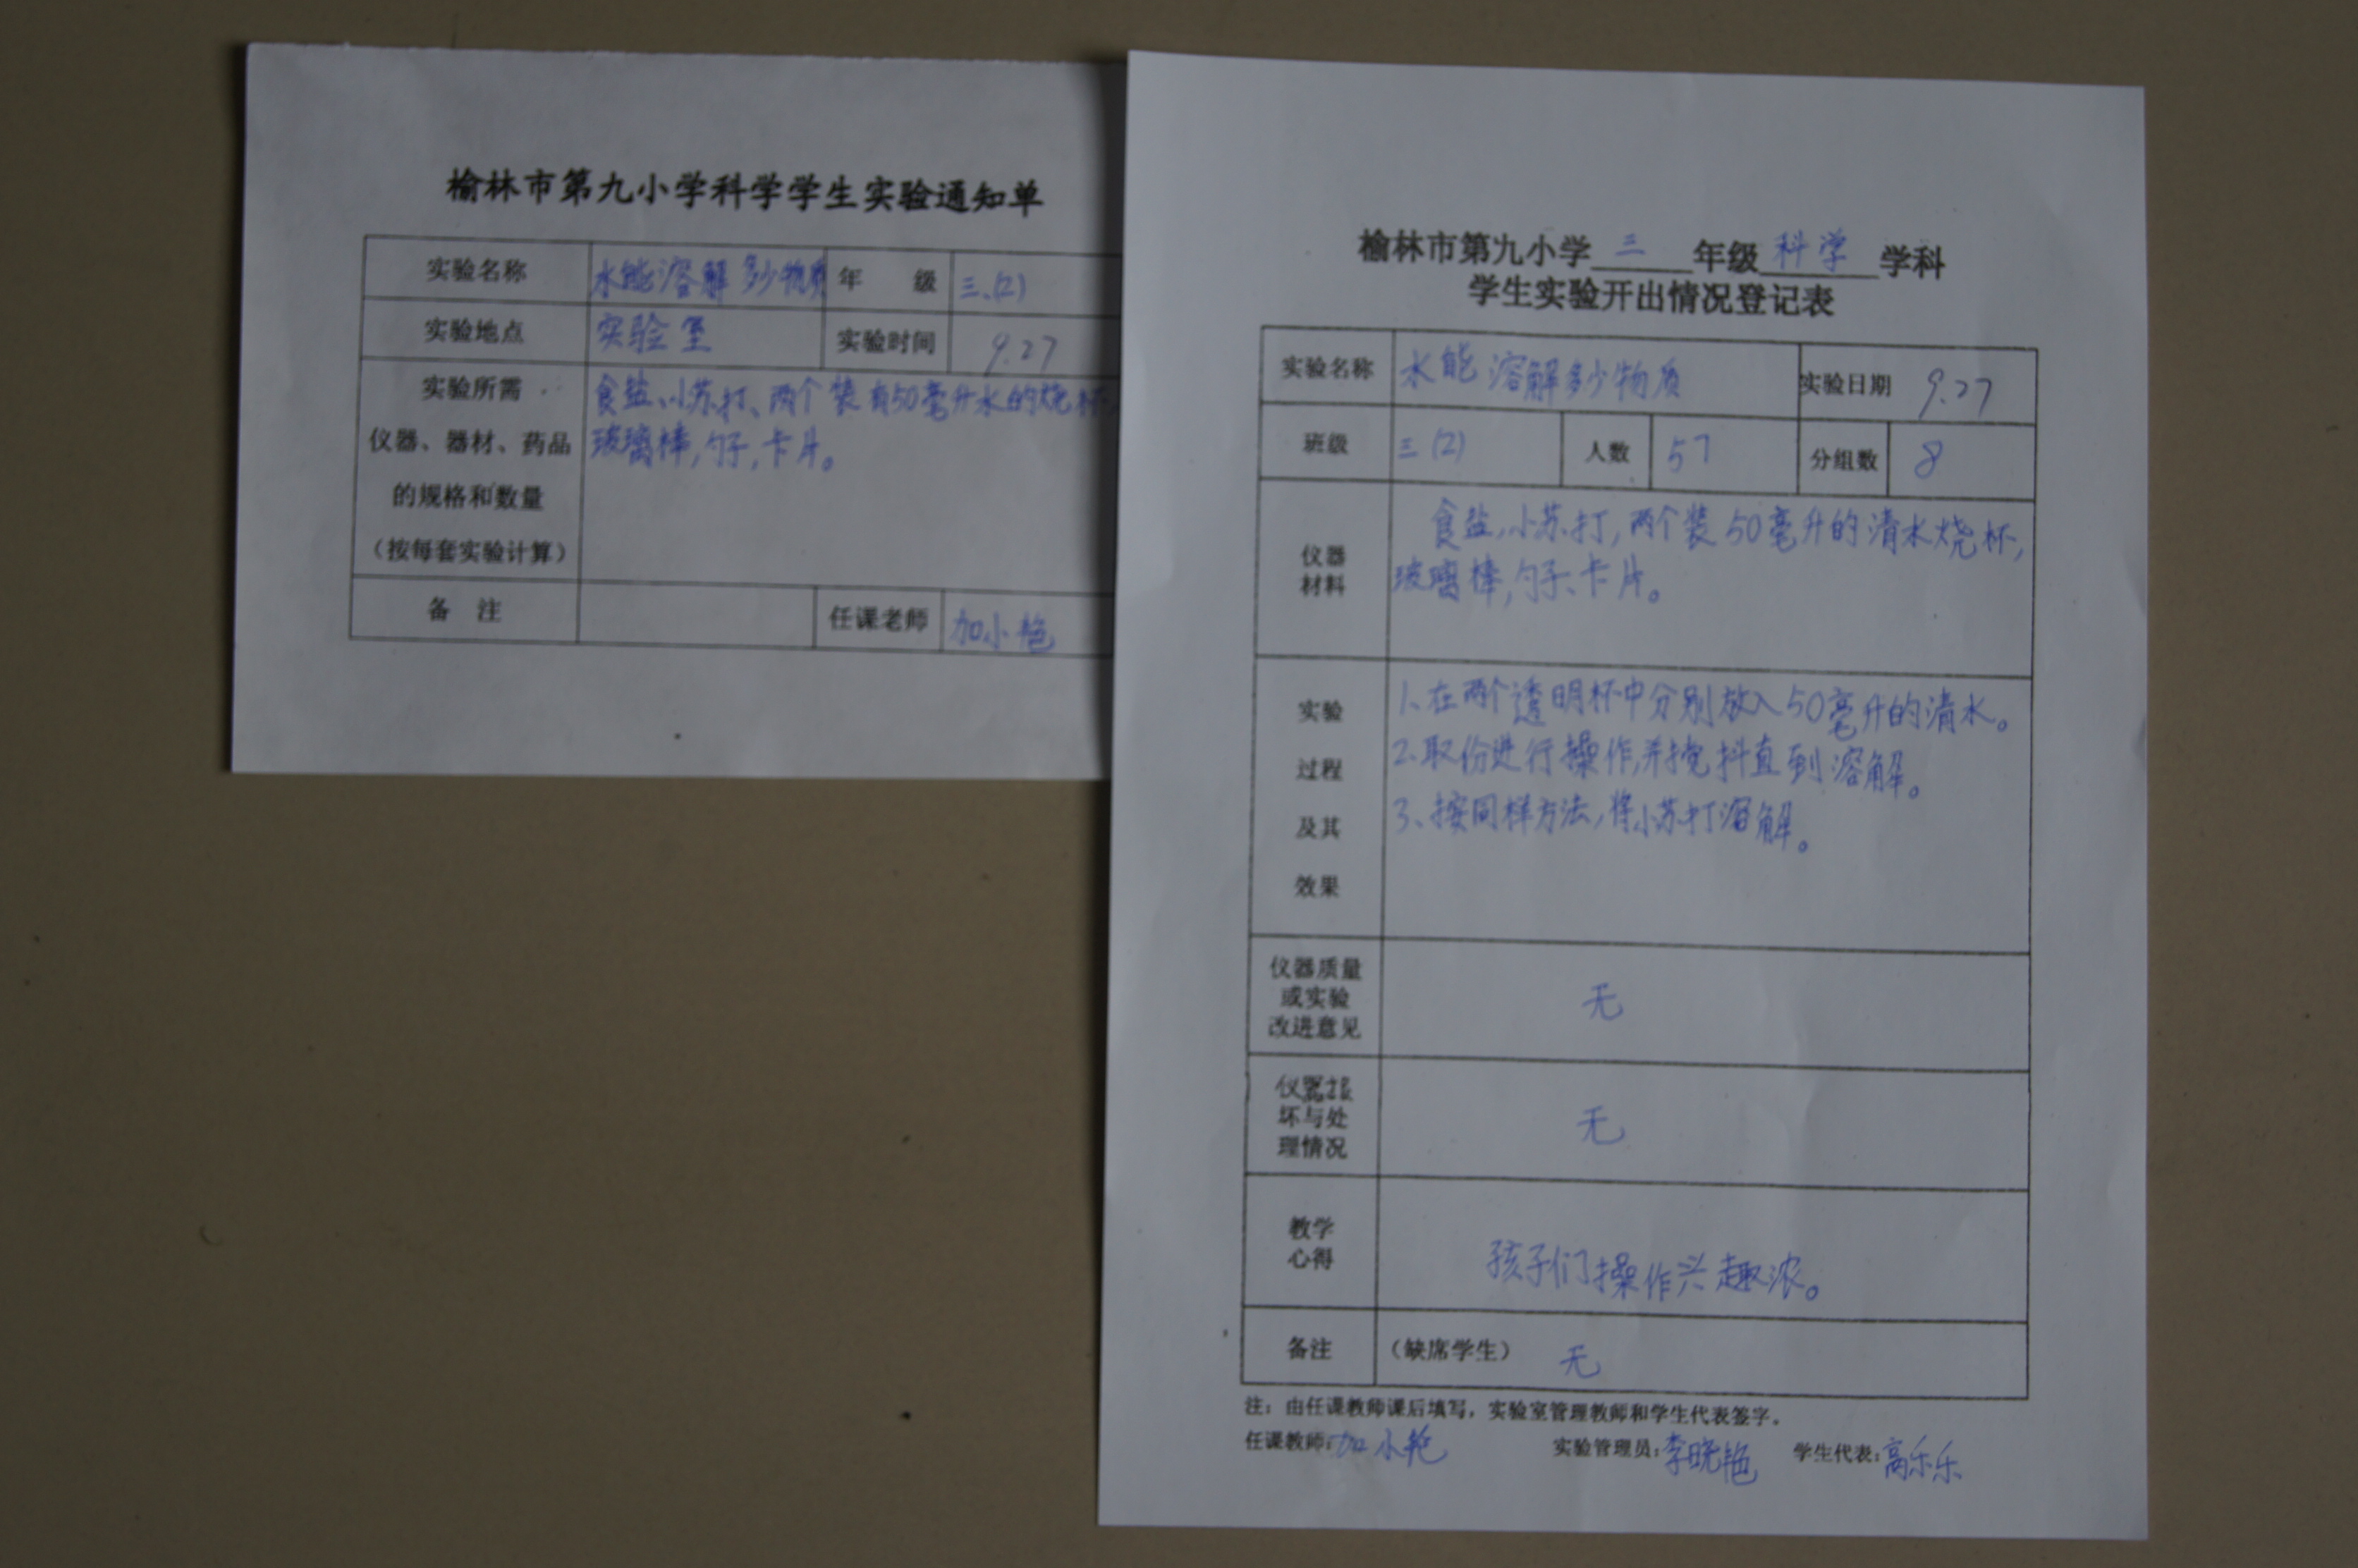 榆林市第九小学科学学生实验通知单
实验名称 水能溶解多少物质 年 级 三.(2)
实验地点 实验室 实验时间 9.27
实验所需
仪器、器材、药品
的规格和数量
（按每套实验计算）
食盐、小苏打、两个装有50毫升水的烧杯,
玻璃棒,勺子,卡片。
备 注 任课老师 加小艳
榆林市第九小学 三 年级 科学 学科
学生实验开出情况登记表
实验名称 水能溶解多少物质 实验日期 9.27
班级 三(2) 人数 57 分组数 8
仪器
材料
食盐,小苏打,两个装50毫升的清水烧杯,
玻璃棒,勺子、卡片。
实验
过程
及其
效果
1、在两个透明杯中分别放入50毫升的清水。
2.取份进行操作,并搅抖直到溶解。
3、按同样方法,将小苏打溶解。
仪器质量
或实验
改进意见
无
仪器损
坏与处
理情况
无
教学
心得
孩子们操作兴趣浓。
备注 （缺席学生） 无
注：由任课教师课后填写，实验室管理教师和学生代表签字。
任课教师:加小艳 实验管理员:李晓艳 学生代表:高乐乐